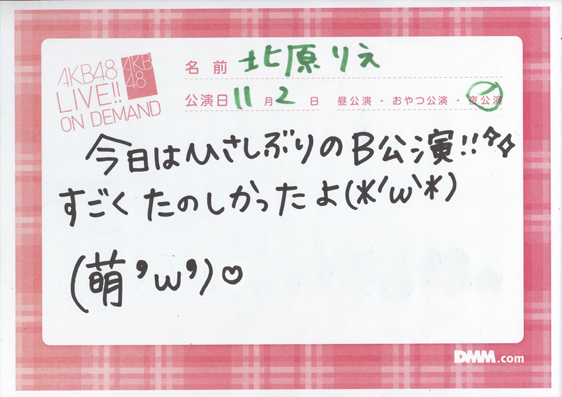 AKB48
LIVE!!
ON DEMAND
AKB
48
名前 北原りえ
公演日 11月2日 昼公演・おやつ公演・夜公演
今日はひさしぶりのB公演!!
すごくたのしかったよ(*´ω`*)
(萌'ω')♡
DMM.com